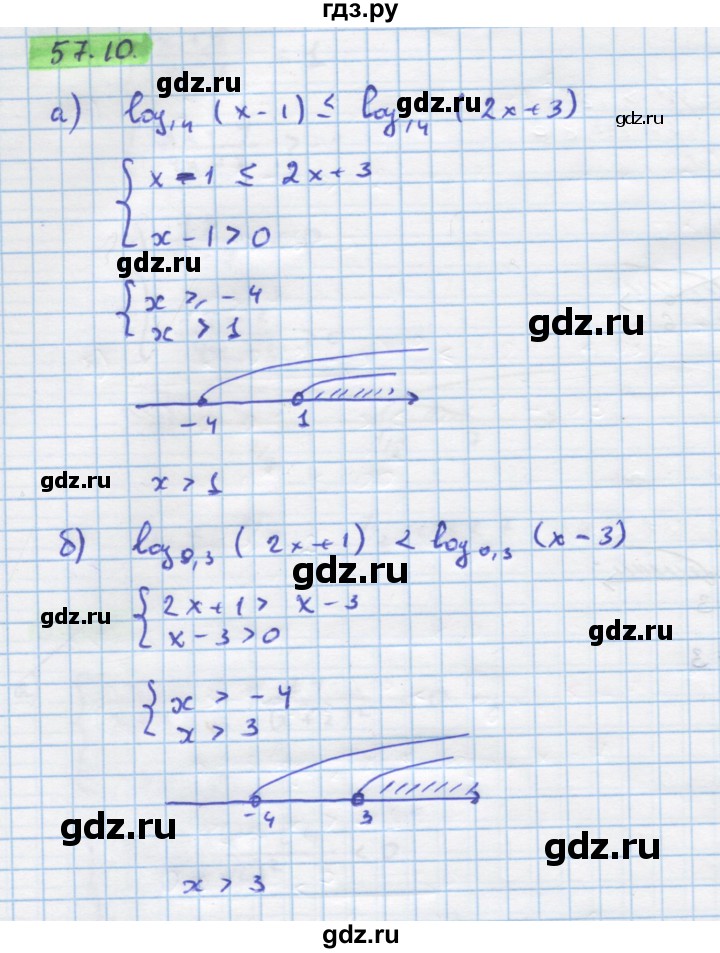 гдз.ру
57.10.
gdz.ru
а) log₁₄ (x - 1) ≤ log₁₄ (2x + 3)
gdz.ru
gdz.ru
{ x - 1 ≤ 2x + 3
x - 1 > 0
gdz.ru
{ x ≥ - 4
x > 1
gdz.ru
-4 1
gdz.ru
x > 1
б) log₀,₃ (2x + 1) < log₀,₃ (x - 3)
gdz.ru
{ 2x + 1 > x - 3
x - 3 > 0
gdz.ru
gdz.ru
{ x > - 4
x > 3
-4 3
gdz.ru
gdz.ru
x > 3
gdz.ru